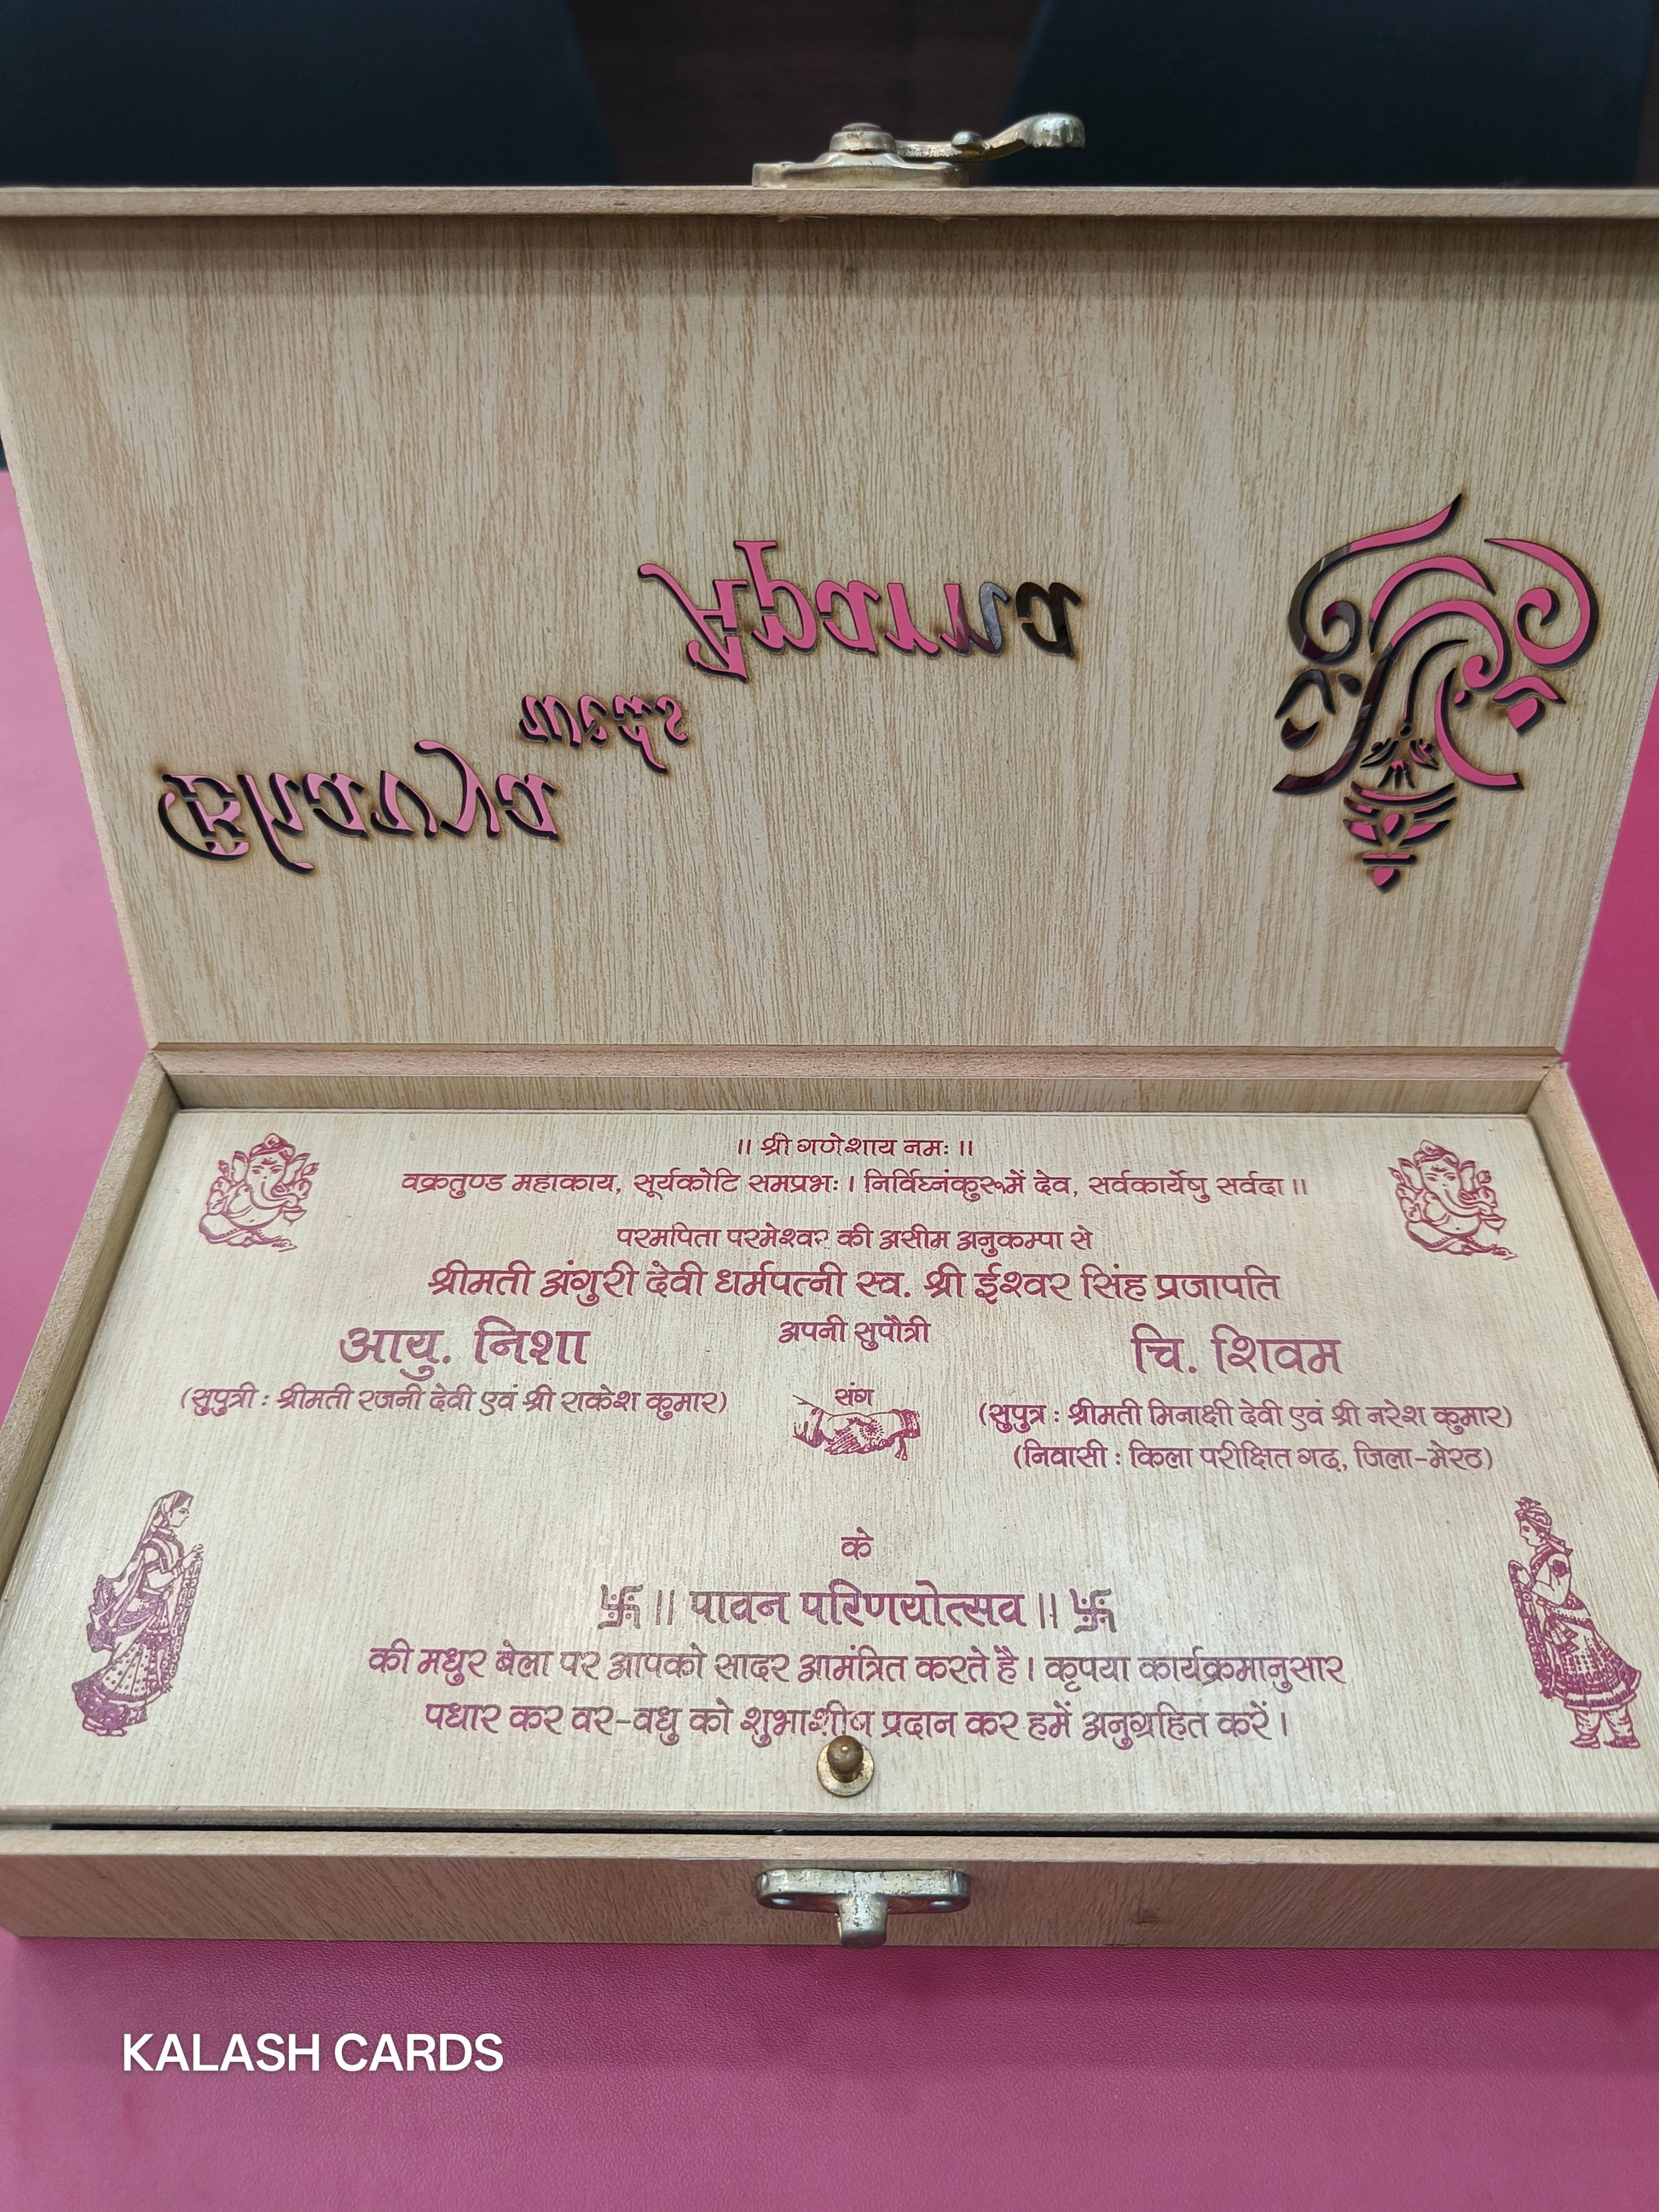 ।। श्री गणेशाय नमः ।।
वक्रतुण्ड महाकाय, सूर्यकोटि समप्रभः । निर्विघ्नंकुरूमें देव, सर्वकार्येषु सर्वदा ।।
परमपिता परमेश्वर की असीम अनुकम्पा से
श्रीमती अंगुरी देवी धर्मपत्नी स्व. श्री ईश्वर सिंह प्रजापति
अपनी सुपौत्री
आयु. निशा
(सुपुत्री : श्रीमती रजनी देवी एवं श्री राकेश कुमार)
संग
चि. शिवम
(सुपुत्र : श्रीमती मिनाक्षी देवी एवं श्री नरेश कुमार)
(निवासी : किला परीक्षित गढ़, जिला-मेरठ)
के
卐 ।। पावन परिणयोत्सव ।। 卐
की मधुर बेला पर आपको सादर आमंत्रित करते है । कृपया कार्यक्रमानुसार
पधार कर वर-वधु को शुभाशीष प्रदान कर हमें अनुग्रहित करें ।
KALASH CARDS